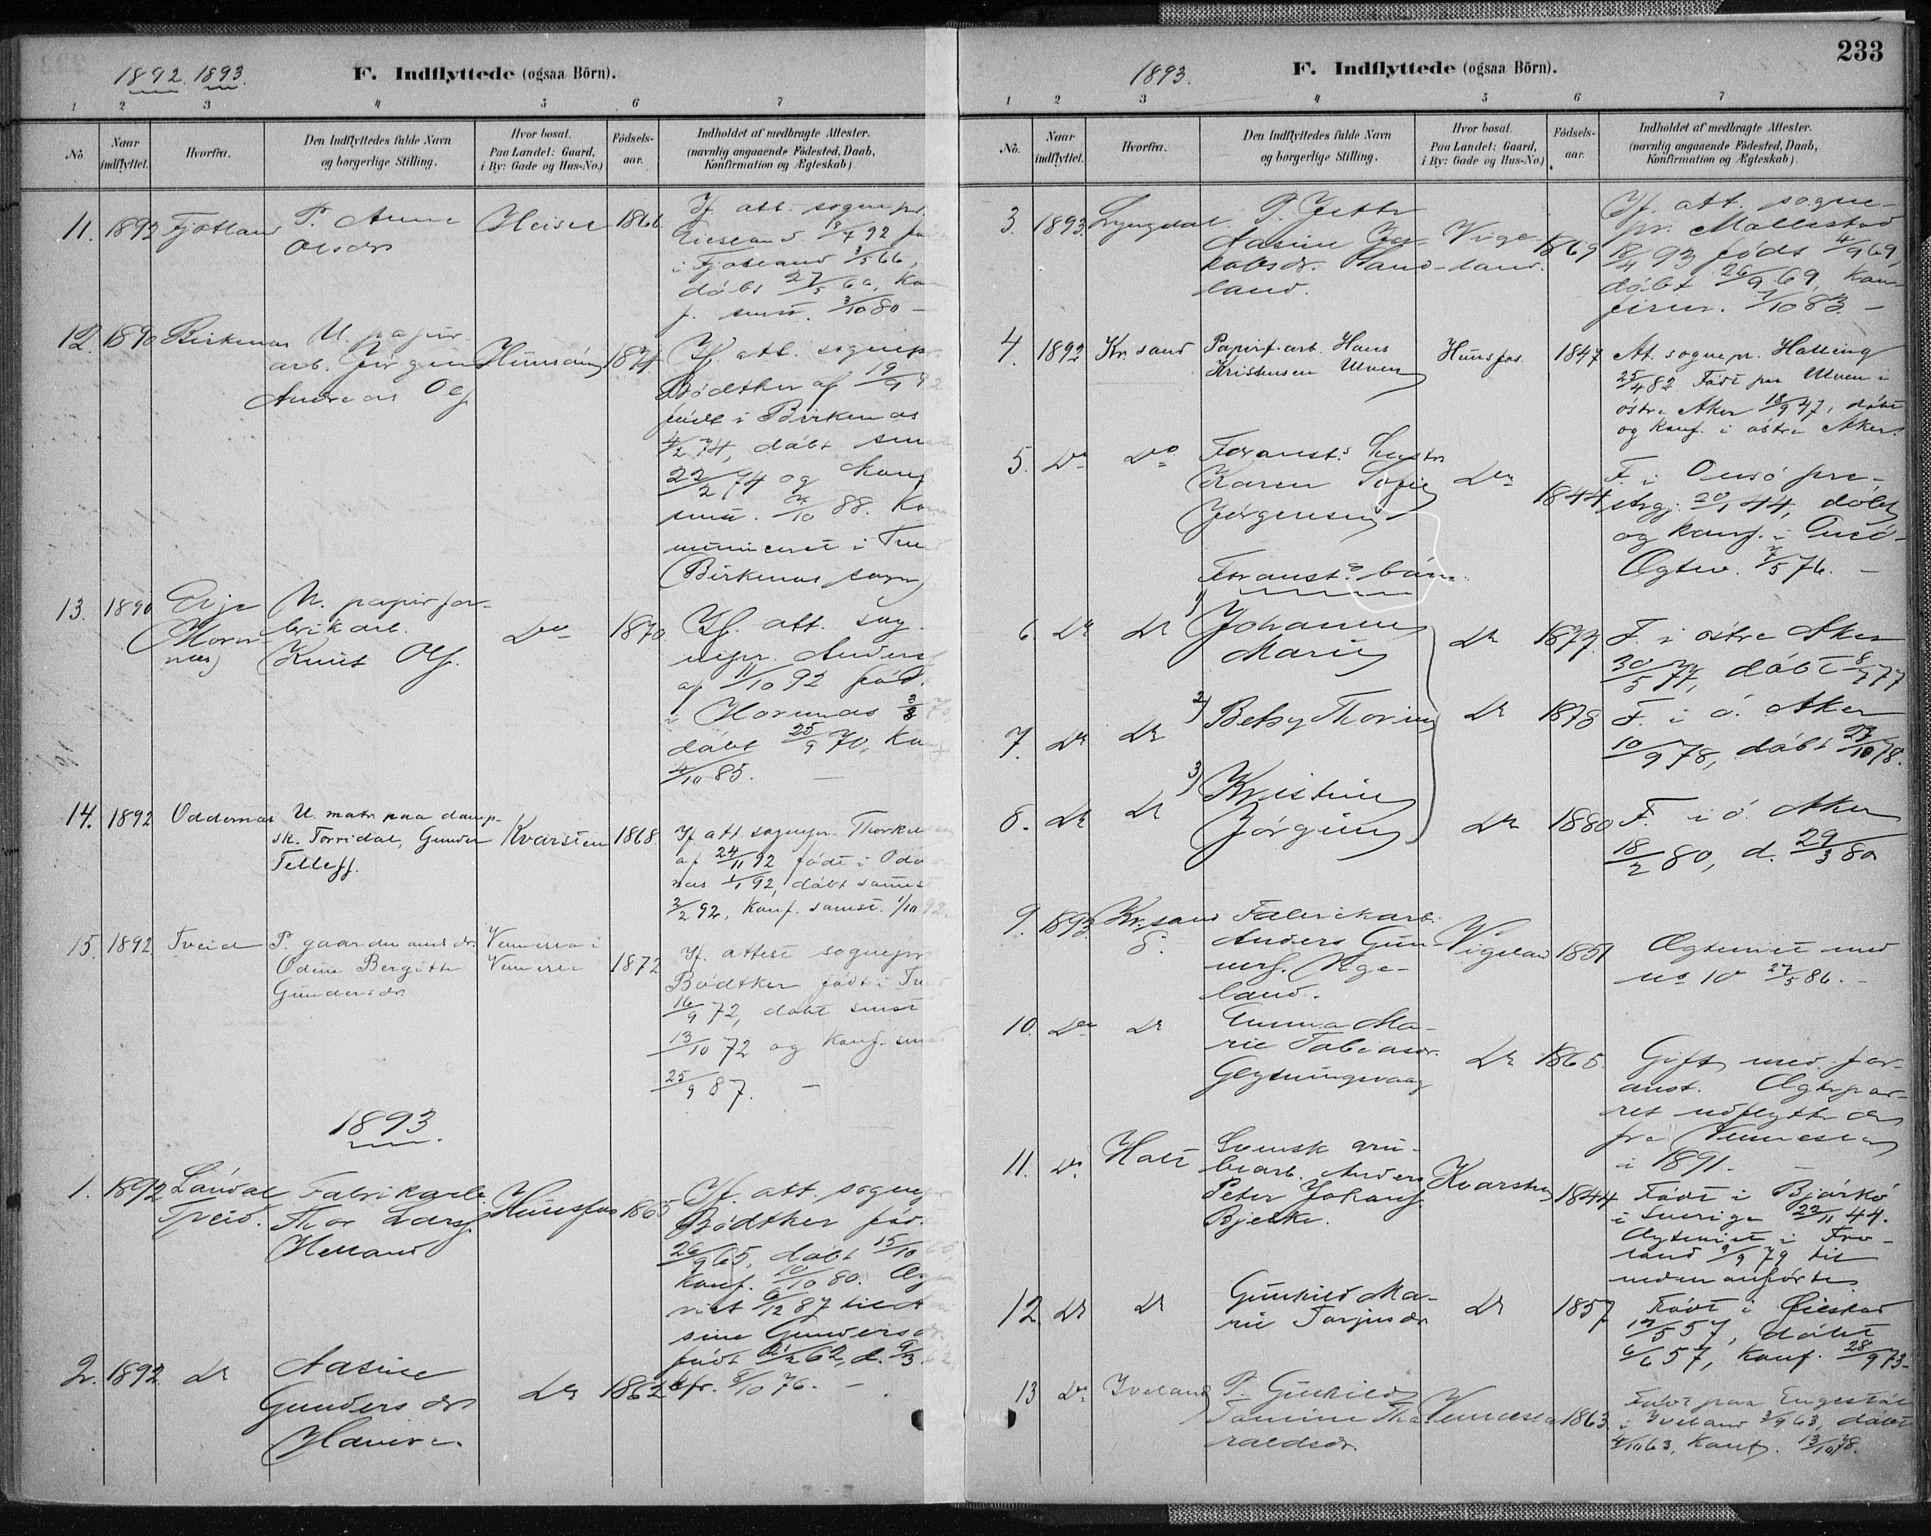 1892. 1893.
F. Indflyttede (ogsaa Börn).
1 2 3 4 5 6 7
No.
Naar indflyttet.
Hvorfra.
Den Indflyttedes fulde Navn
og borgerlige Stilling.
Hvor bosat.
Paa Landet: Gaard,
i By: Gade og Hus-No.)
Födsels-
aar.
Indholdet af medbragte Attester.
(navnlig angaaende Födested, Daab,
Konfirmation og Ægteskab)
11. 1892 Fjotland P. Anne
Olsdr
1866
If. att. sognepr.
92
i Fjotland 66,
döbt 27/5 66,
3/10 80 -
12. 1890 Birkenas U. papir
arb. Jörgen
Andreas Ols.
1874
If. att. sognepr.
Bödtker af 19/9 92
födt i Birkenas
4/2 74, döbt smst
22/2 74 og konf
smst. 88. Kom
municeret i
Birkenas sogn
13. 1890
U. papirfa-
brikarb.
Knut Ols.
Do
1870
If. att. sog
nepr. Anders
af 11/10 92 född
i
döbt 25/9 70,
4/10 85.
14. 1892 Oddernas U. matr. paa damp-
sk. Torridal, Gunder
Tellefs.
Kvarsten 1868
If att sognepr.
af 24/11 92 födt i Odder
nas 1/1 92, döbt samst.
2/2 92, konf. samst. 1/10 92.
15. 1892 Tveid P. gaardmandsdr.
Odine Bergitte
Gundersdr.
Vennesla i
Vennesla
1872
If. attest sognepr
Bödtker födt i
16/9 72, döbt smst
13/10 72 og konf. smst
25/9 87. -
1893.
1. 1892 Laudal
Tveid.
Fabrikarb.
Thor Lars.
Helland
Hunsfos 1865
If. att. sognepr
Bödtker föd.
26/9 65, döbt 15/10 65,
konf. 10/10 80. Æg
viet 6/12 87 til Aa
sine Gundersdr.
födt 62, d. 62,
2. 1892. Do Aasine
Gundersdr
Do 1862 cfr. 8/10 76. -
233
1893.
F. Indflyttede (ogsaa Börn).
1 2 3 4 5 6 7
No.
Naar
indflyttet.
Hvorfra.
Den Indflyttedes fulde Navn
og borgerlige Stilling.
Hvor bosat.
Paa Landet: Gaard,
i By: Gade og Hus-No.)
Födsels-
aar.
Indholdet af medbragte Attester.
(navnlig angaaende Födested, Daab,
Konfirmation og Ægteskab).
3. 1893. Lyngdal P. Jette
Aasine Ja-
kobsdr.
land.
Vige-
land.
1869
If. att. sogne-
pr. Mollestad
18/4 93 födt 4/9 69,
döbt 26/9 69, kon
firm. 7/10 83. -
4. 1892 Kr.sand Papirf.arb. Hans
Kristensen Ulven
Hunsfos. 1847
Att. sognepr. Halling
25/4 82 Födt paa Ulven i
östre Aker 18/9 47, döbt
og konf. i östre Aker.
5. Do Do Foranst.s hustr
Karen Sofie
Jörgensen
Do
1844
F. i Onsö pre-
stegj. 20/1 44, döbt
og konf. i Onsö.
Ægtev. 76. -
Foranst.s börn.
6. Do Do 1) Johanne
Marie
Do 1877.
F. i östre Aker
30/5 77, döbt 8/7 77
7. Do Do 2) Betsy Thorine Do 1878
F. i ö. Aker
10/9 78, döbt 27/10 78.
8. Do Do 3) Kristine
Jörgine
Do 1880
F. i ö. Aker
18/2 80, d. 29/3 80
9. 1893 Kr.sand
S.
Fabrikarb.
Anders Gun-
ners. Vege-
land.
Vigeland 1851
Ægteviet med
no 10 27/5 86. -
10. Do Do Emma Ma-
rie Tobiasdr.
Do 1865.
Gift med for-
anst. Ægtepar-
ret udflyttede
fra Vennesla
i 1891. -
11. Do Holt Svensk gru-
bearb. Anders
Peter Johans.
Bjelke.
Kvarsten 1844
Födt i Björkö
i Sverige 22/11 44.
Ægteviet i Fro-
land 9/9 79 til
nedenanförte.
12. Do Do Gunhild Ma-
rie Torjusdr.
Do 1857
Födt i Öiestad
12/5 57, döbt
6/6 57, konf. 28/9 73.
13 Do Iveland P. Gunhild
Tomine Tha
raldsdr.
Vennesla 1863.
Födt paa
i Iveland 3/9 63, döbt
4/10 63, konf. 13/10 78.